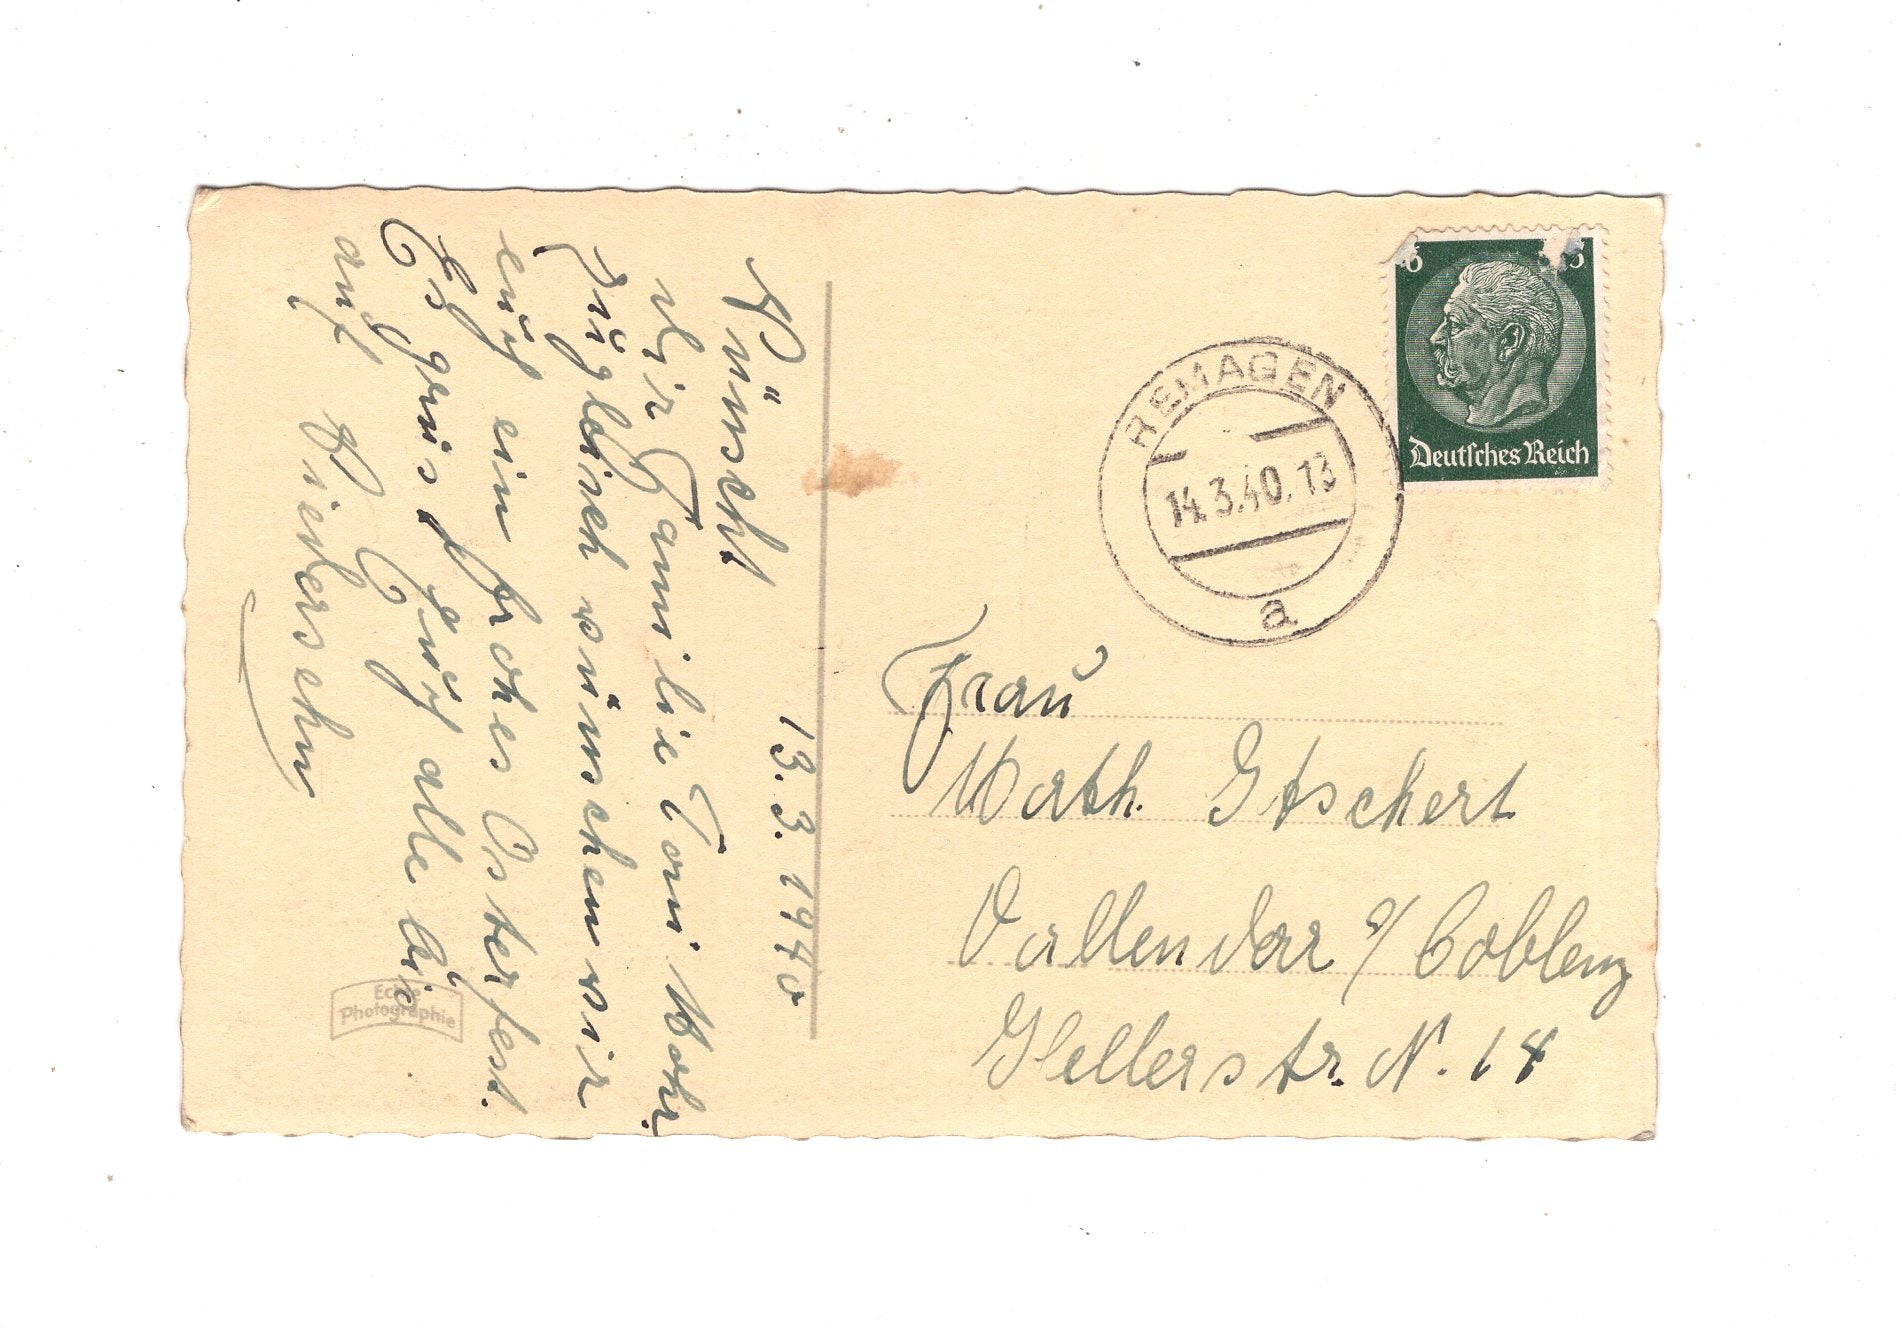 13.3.1940
Wünscht
dir Familie Toni Mohr
zugleich wünschen wir
euch ein frohes Osterfest.
Es grüs Euch alle bis
auf Wiedersehn
6
Deutsches Reich
REMAGEN
14.3.40.13
a
Frau
Math. Gtschert
Vallendar a/ Coblenz
Hellerstr. N. 14
Echte
Photographie